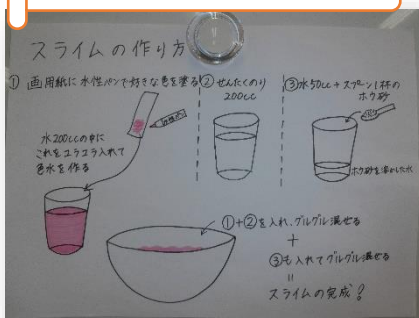 スライムの作り方
① 画用紙に水性ペンで好きな色を塗る
水200ccの中に
これをユラユラ入れて
色水を作る
② せんたくのり
200cc
③ 水50cc+スプーン1杯の
ホウ砂
ホウ砂を溶かした水
①+②を入れ、グルグル混ぜる
+
③も入れてグルグル混ぜる
=
スライムの完成!